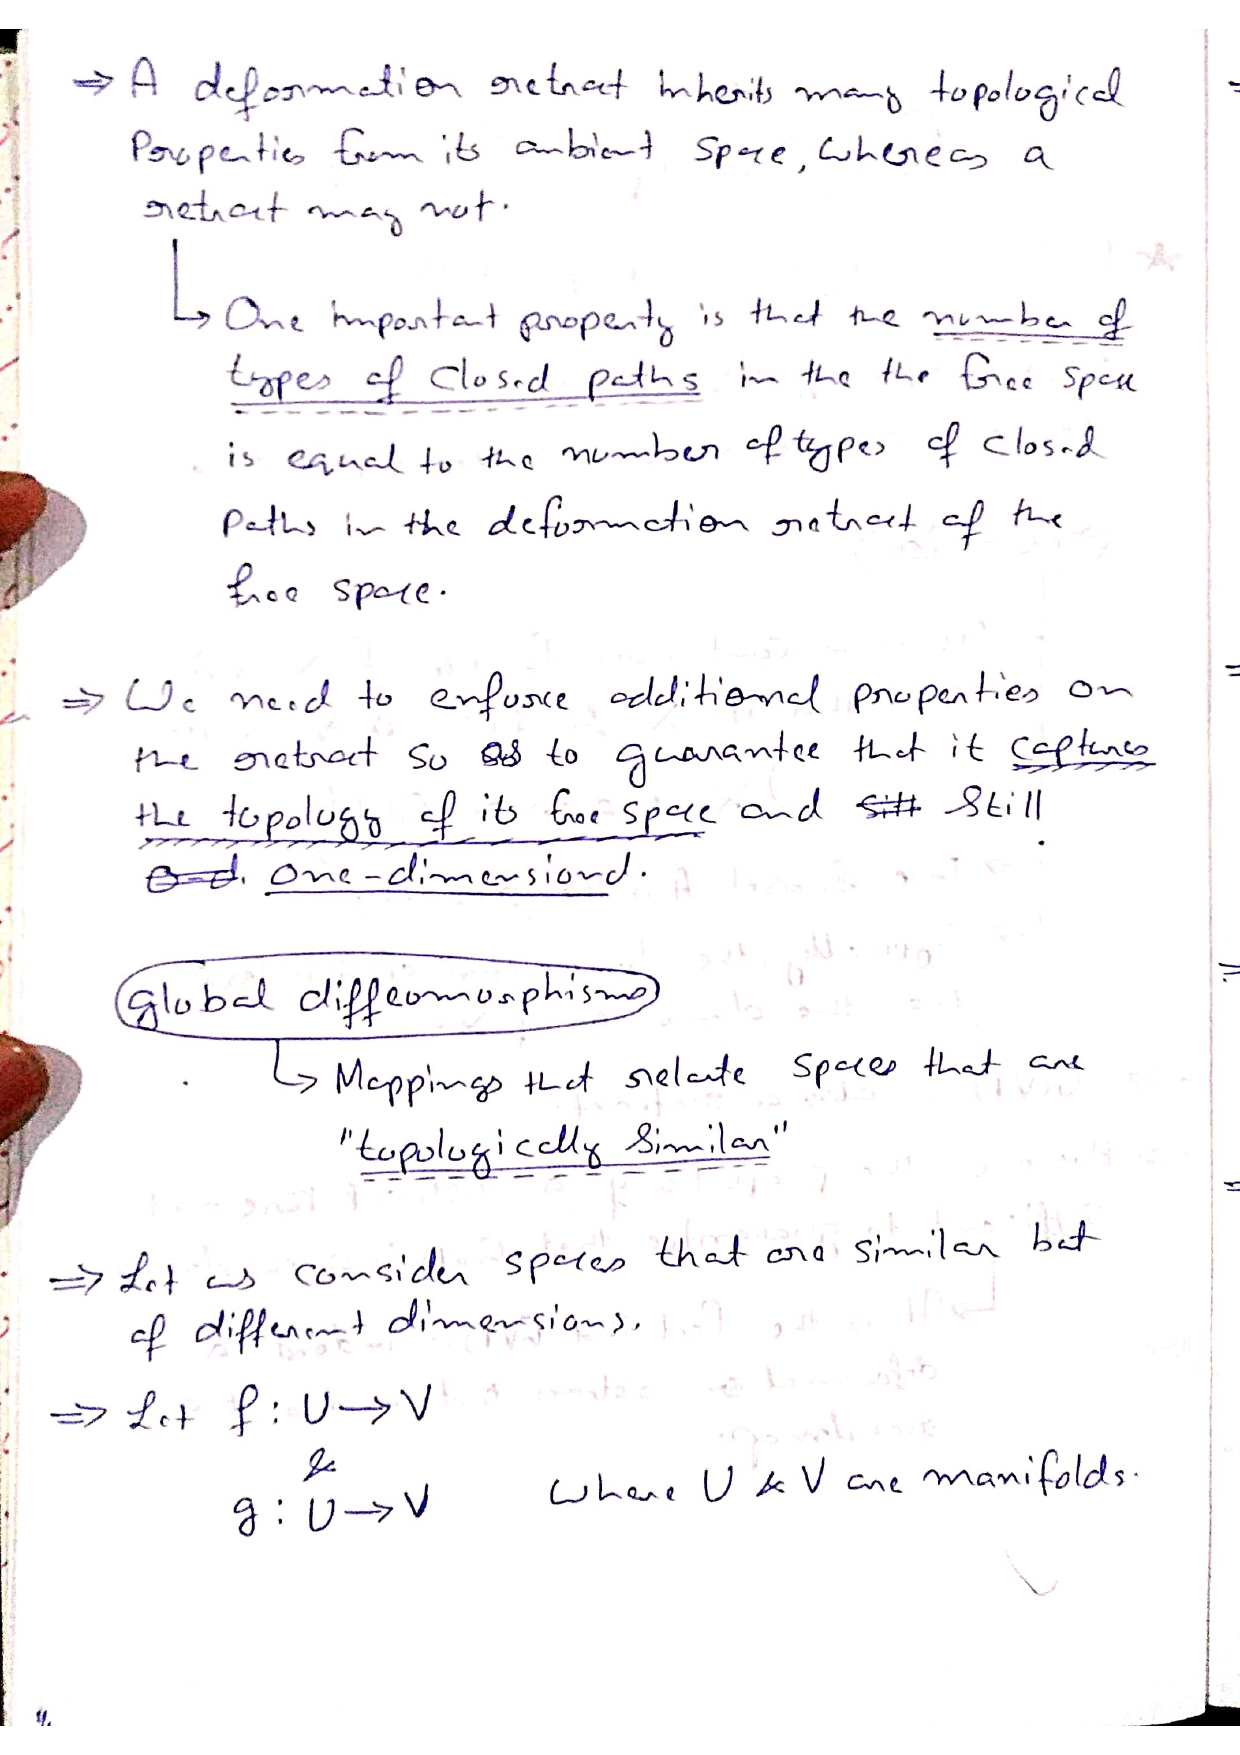 ⇒ A deformation retract inherits many topological
Properties from its ambient space, whereas a
retract may not.
↳ One important property is that the number of
types of closed paths in the the free space
is equal to the number of types of closed
Paths in the deformation retract of the
free space.
⇒ We need to enforce additional properties on
the retract so as to guarantee that it captures
the topology of its free space and still
one-dimensional.
Global diffeomorphisms
↳ Mappings that relate spaces that are
"topologically similar"
⇒ Let us consider spaces that are similar but
of different dimensions.
⇒ Let f : U → V
&
g : U → V where U & V are manifolds.